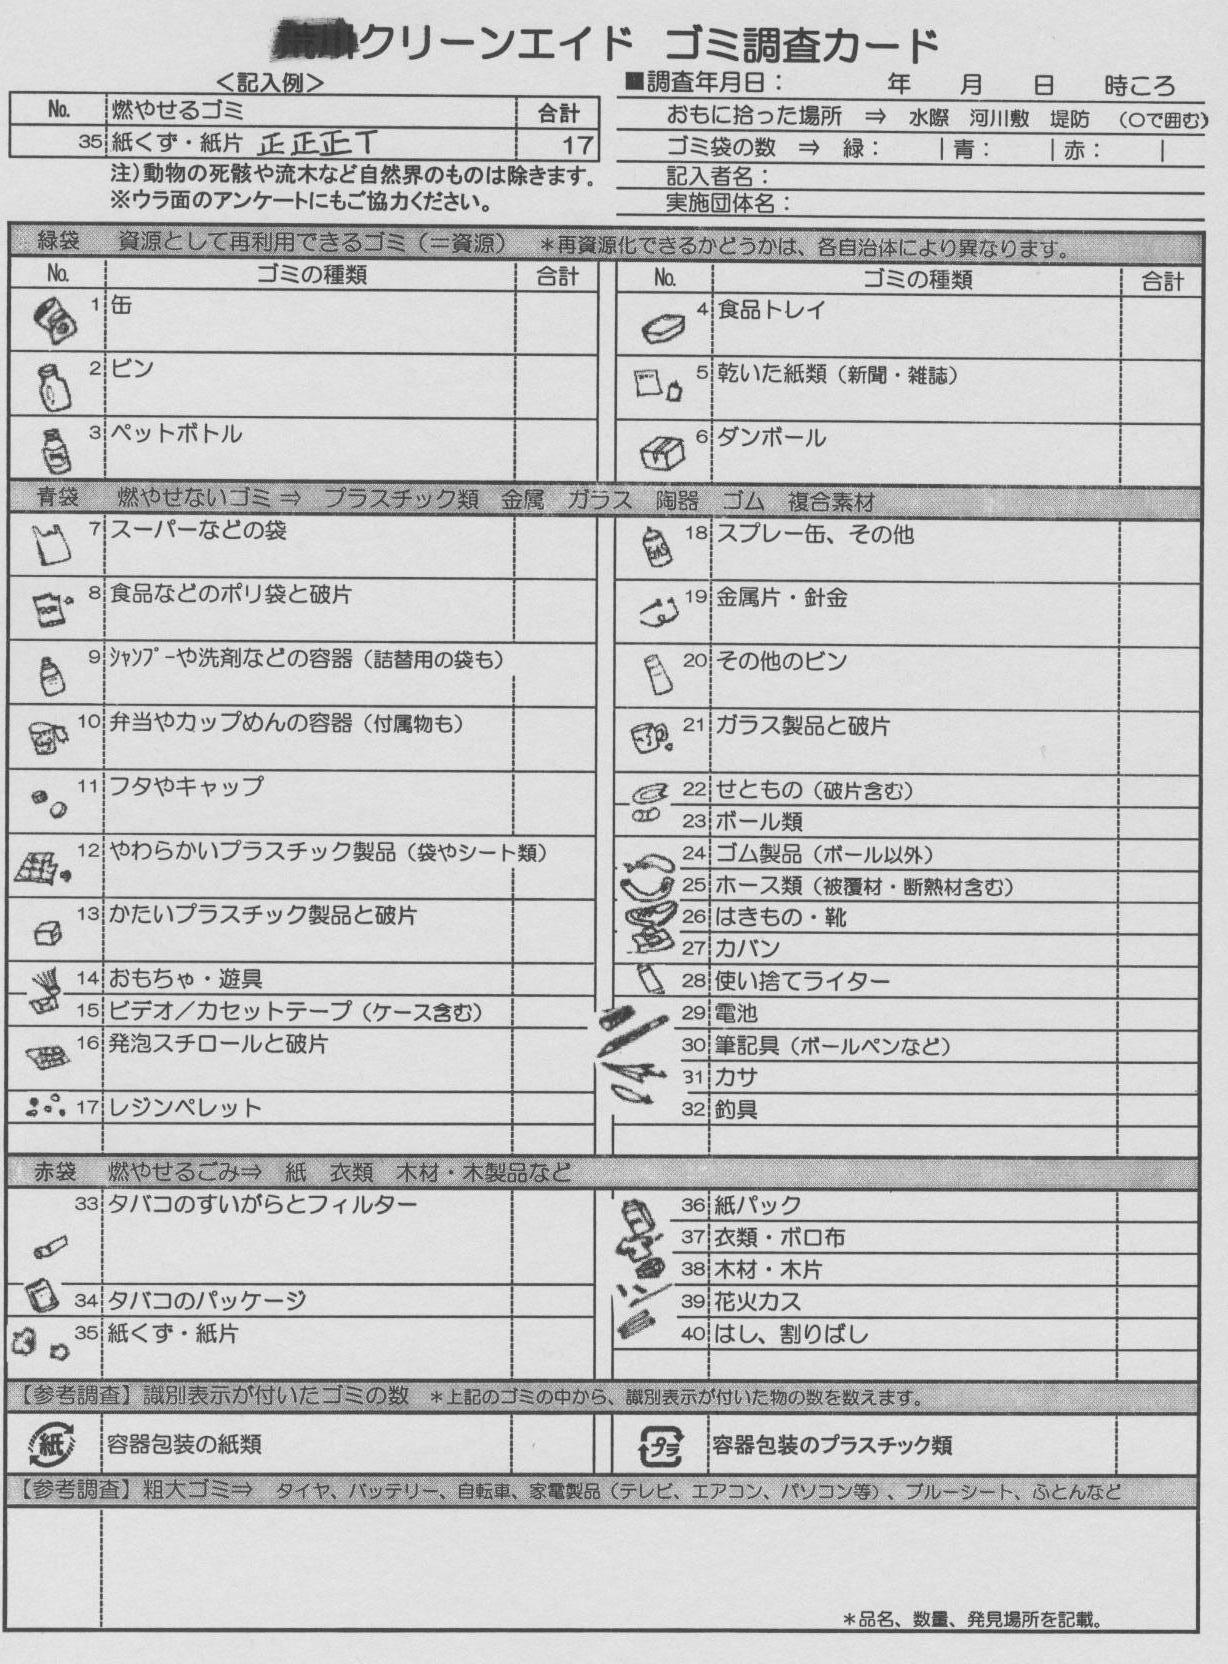 クリーンエイド ゴミ調査カード
<記入例>
No. 燃やせるゴミ 合計
35 紙くず・紙片 正正正丅 17
注)動物の死骸や流木など自然界のものは除きます。
※ウラ面のアンケートにもご協力ください。
■調査年月日： 年 月 日 時ころ
おもに拾った場所 ⇒ 水際 河川敷 堤防 (○で囲む)
ゴミ袋の数 ⇒ 緑： | 青： | 赤： |
記入者名：
実施団体名：
緑袋 資源として再利用できるゴミ(＝資源) ＊再資源化できるかどうかは、各自治体により異なります。
No. ゴミの種類 合計
1 缶
2 ビン
3 ペットボトル
No. ゴミの種類 合計
4 食品トレイ
5 乾いた紙類(新聞・雑誌)
6 ダンボール
青袋 燃やせないゴミ ⇒ プラスチック類 金属 ガラス 陶器 ゴム 複合素材
7 スーパーなどの袋
8 食品などのポリ袋と破片
9 ｼｬﾝﾌﾟｰや洗剤などの容器(詰替用の袋も)
10 弁当やカップめんの容器(付属物も)
11 フタやキャップ
12 やわらかいプラスチック製品(袋やシート類)
13 かたいプラスチック製品と破片
14 おもちゃ・遊具
15 ビデオ／カセットテープ(ケース含む)
16 発泡スチロールと破片
17 レジンペレット
GAS
18 スプレー缶、その他
19 金属片・針金
20 その他のビン
21 ガラス製品と破片
22 せともの(破片含む)
23 ボール類
24 ゴム製品(ボール以外)
25 ホース類(被覆材・断熱材含む)
26 はきもの・靴
27 カバン
28 使い捨てライター
29 電池
30 筆記具(ボールペンなど)
31 カサ
32 釣具
赤袋 燃やせるごみ⇒ 紙 衣類 木材・木製品など
33 タバコのすいがらとフィルター
34 タバコのパッケージ
35 紙くず・紙片
36 紙パック
37 衣類・ボロ布
38 木材・木片
39 花火カス
40 はし、割りばし
【参考調査】識別表示が付いたゴミの数 ＊上記のゴミの中から、識別表示が付いた物の数を数えます。
紙 容器包装の紙類
プラ 容器包装のプラスチック類
【参考調査】粗大ゴミ⇒ タイヤ、バッテリー、自転車、家電製品(テレビ、エアコン、パソコン等)、ブルーシート、ふとんなど
＊品名、数量、発見場所を記載。